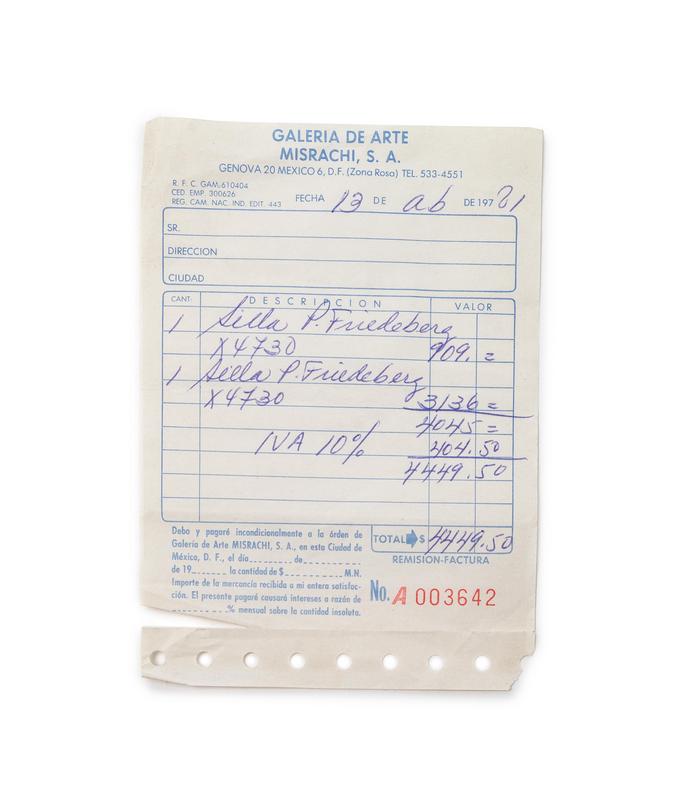 GALERIA DE ARTE
MISRACHI, S. A.
GENOVA 20 MEXICO 6, D.F. (Zona Rosa) TEL. 533-4551
R. F. C. GAM-610404
CED. EMP. 300626
REG. CAM. NAC. IND. EDIT. 443
FECHA 13 DE ab DE 197 81
SR.
DIRECCION
CIUDAD
CANT. DESCRIPCION VALOR
1 Silla P. Friedeberg
X4730 909. =
1 Silla P. Friedeberg
X4730 3136 =
4045 =
IVA 10% 404.50
4449.50
Debo y pagaré incondicionalmente a la órden de
Galería de Arte MISRACHI, S. A., en esta Ciudad de
México, D. F., el día ......... de .........
de 19....... la cantidad de $ ............ M.N.
Importe de la mercancía recibida a mi entera satisfac-
ción. El presente pagaré causará intereses a razón de
............% mensual sobre la cantidad insoluta.
TOTAL $ 4449.50
REMISION-FACTURA
No. A 003642